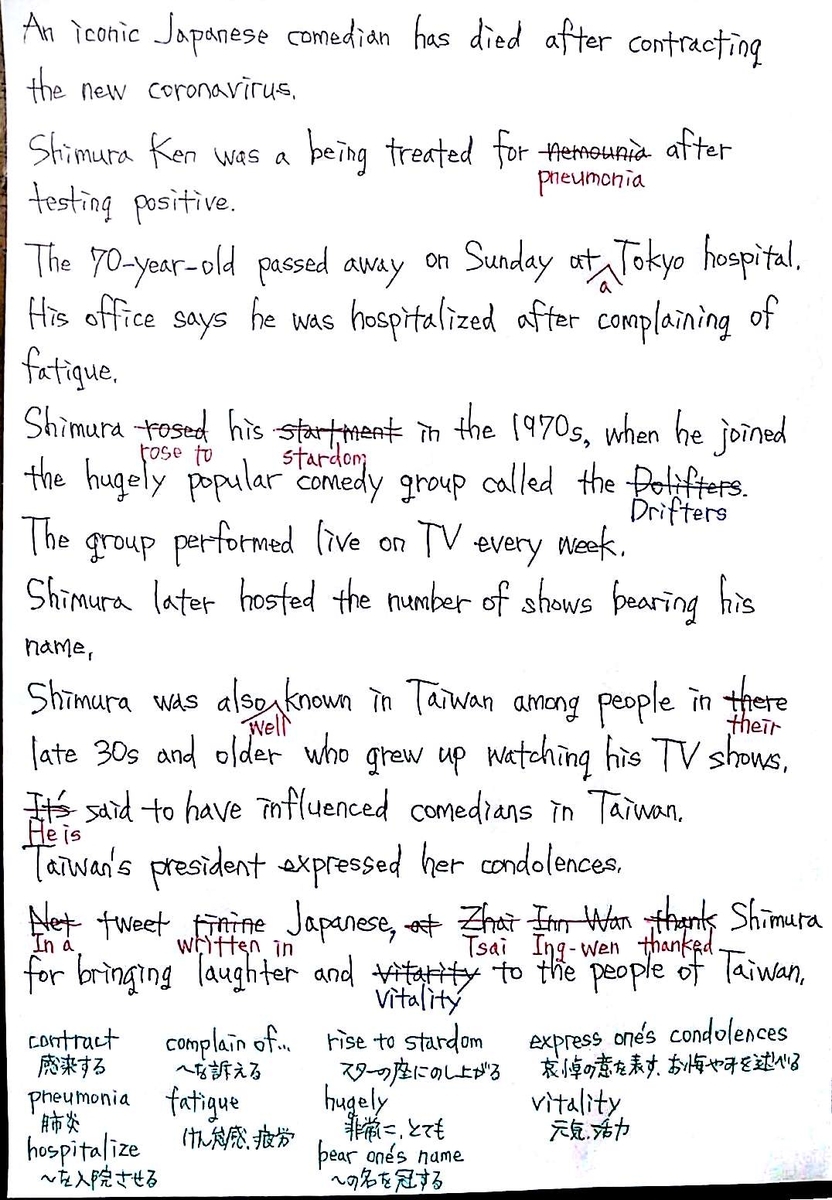 An iconic Japanese comedian has died after contracting
the new coronavirus.
Shimura Ken was a being treated for nemounia after
pneumonia
testing positive.
The 70-year-old passed away on Sunday at Tokyo hospital.
a
His office says he was hospitalized after complaining of
fatigue.
Shimura rosed his startment in the 1970s, when he joined
rose to stardom
the hugely popular comedy group called the Dolifters.
Drifters
The group performed live on TV every week.
Shimura later hosted the number of shows bearing his
name,
Shimura was also known in Taiwan among people in there
well their
late 30s and older who grew up watching his TV shows.
It's said to have influenced comedians in Taiwan.
He is
Taiwan's president expressed her condolences.
Net tweet finine Japanese, at Zhai Inn Wan thank Shimura
In a written in Tsai Ing-wen thanked
for bringing laughter and vitarity to the people of Taiwan.
vitality
contract complain of... rise to stardom express one's condolences
感染する ～を訴える スターの座にのし上がる 哀悼の意を表す、お悔やみを述べる
pneumonia fatigue hugely vitality
肺炎 けん怠感、疲労 非常に、とても 元気、活力
hospitalize bear one's name
～を入院させる ～の名を冠する